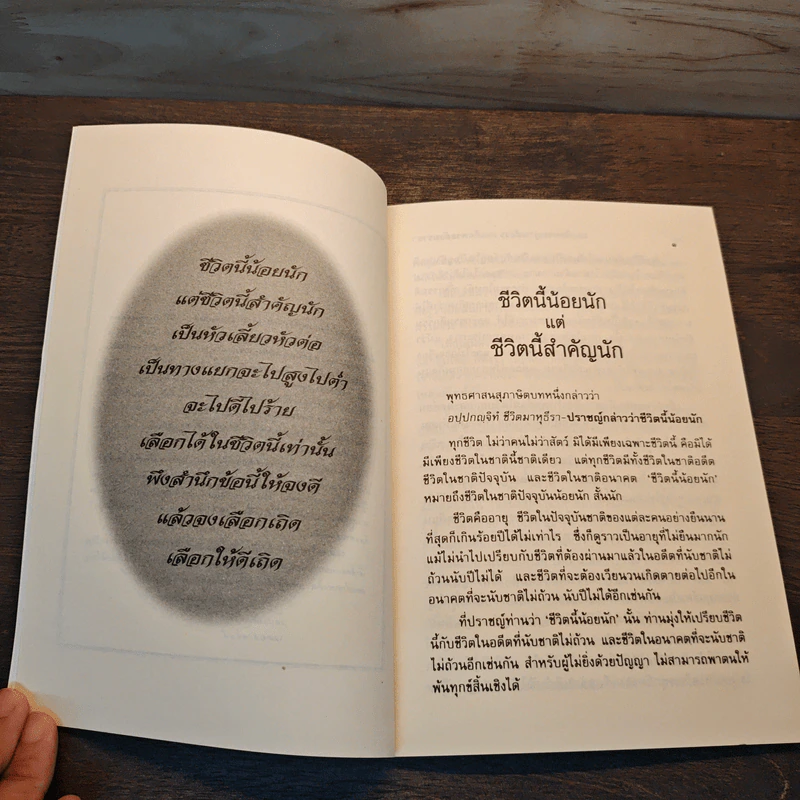 ชีวิตนี้น้อยนัก
แต่ชีวิตนี้สำคัญนัก
เป็นหัวเลี้ยวหัวต่อ
เป็นทางแยกจะไปสูงไปต่ำ
จะไปดีไปร้าย
เลือกได้ในชีวิตนี้เท่านั้น
พึงสำนึกข้อนี้ให้จงดี
แล้วจงเลือกเถิด
เลือกให้ดีเถิด
ชีวิตนี้น้อยนัก
แต่
ชีวิตนี้สำคัญนัก
พุทธศาสนสุภาษิตบทหนึ่งกล่าวว่า
อปฺปกญฺจิทํ ชีวิตมาหุธีรา-ปราชญ์กล่าวว่าชีวิตนี้น้อยนัก
ทุกชีวิต ไม่ว่าคนไม่ว่าสัตว์ มิได้มีเพียงเฉพาะชีวิตนี้ คือมิได้
มีเพียงชีวิตในชาตินี้ชาติเดียว แต่ทุกชีวิตมีทั้งชีวิตในชาติอดีต
ชีวิตในชาติปัจจุบัน และชีวิตในชาติอนาคต 'ชีวิตนี้น้อยนัก'
หมายถึงชีวิตในชาติปัจจุบันน้อยนัก สั้นนัก
ชีวิตคืออายุ ชีวิตในปัจจุบันชาติของแต่ละคนอย่างยืนนาน
ที่สุดก็เกินร้อยปีได้ไม่เท่าไร ซึ่งก็ดูราวเป็นอายุที่ไม่ยืนมากนัก
แม้ไม่นำไปเปรียบกับชีวิตที่ต้องผ่านมาแล้วในอดีตที่นับชาติไม่
ถ้วนนับปีไม่ได้ และชีวิตที่จะต้องเวียนวนเกิดตายต่อไปอีกใน
อนาคตที่จะนับชาติไม่ถ้วน นับปีไม่ได้อีกเช่นกัน
ที่ปราชญ์ท่านว่า 'ชีวิตนี้น้อยนัก' นั้น ท่านมุ่งให้เปรียบชีวิต
นี้กับชีวิตในอดีตที่นับชาติไม่ถ้วน และชีวิตในอนาคตที่จะนับชาติ
ไม่ถ้วนอีกเช่นกัน สำหรับผู้ไม่ยิ่งด้วยปัญญา ไม่สามารถพาตนให้
พ้นทุกข์สิ้นเชิงได้